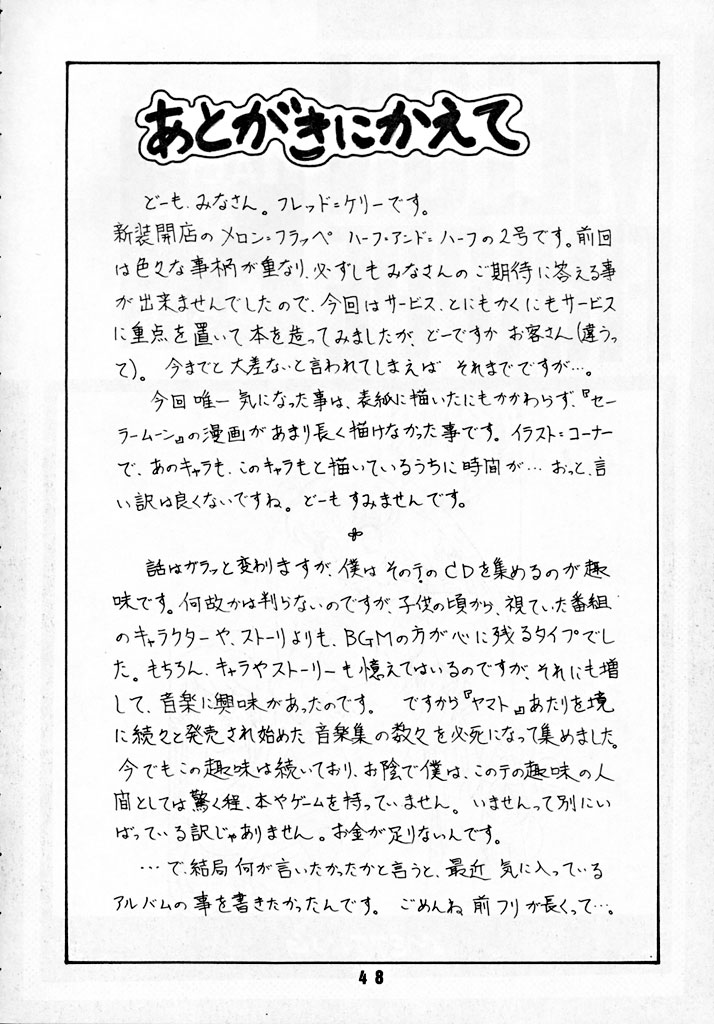 あとがきにかえて
どーも、みなさん。フレッド=ケリーです。
新装開店の メロン=フラッペ ハーフ=アンド=ハーフの2号です。前回
は色々な事柄が重なり、必ずしもみなさんのご期待に答える事
が出来ませんでしたので、今回はサービス、とにもかくにもサービス
に重点を置いて本を造ってみましたが、どーですか お客さん(違うっ
て)。 今までと大差ないと言われてしまえば それまでですが…。
今回唯一 気になった事は、表紙に描いたにもかかわらず、『セー
ラームーン』の漫画があまり長く描けなかった事です。イラスト=コーナー
で、あのキャラも、このキャラもと描いているうちに時間が… おっと、言
い訳は良くないですね。どーも すみませんです。
話はガラっと変わりますが、僕は そのテのCDを集めるのが趣
味です。何故かは判らないのですが、子供の頃から、視ていた番組
のキャラクターや、ストーリよりも、BGMの方が心に残るタイプでし
た。もちろん、キャラやストーリーも憶えてはいるのですが、それにも増
して、音楽に興味があったのです。 ですから『ヤマト』あたりを境
に続々と発売され始めた 音楽集の数々を必死になって集めました。
今でもこの趣味は続いており、お陰で僕は、このテの趣味の人
間としては驚く程、本やゲームを持っていません。いませんって別にい
ばっている訳じゃありません。お金が足りないんです。
…で、結局 何が言いたかったかと言うと、最近 気に入っている
アルバムの事を書きたかったんです。 ごめんね 前フリが長くって…。
48